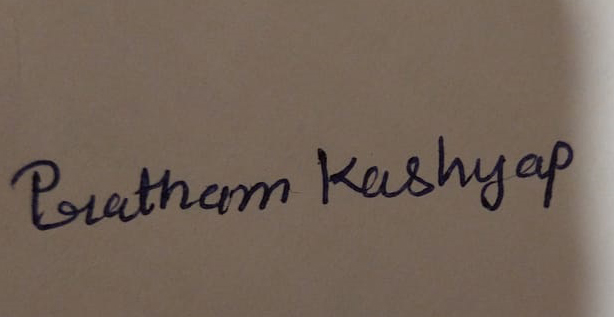 Pratham Kashyap